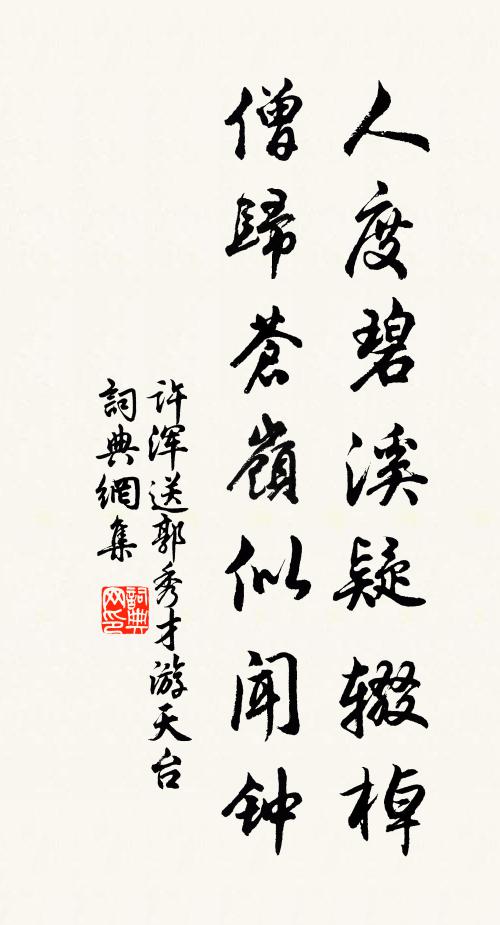 人度碧溪疑辍棹
僧歸蒼嶺似闻钟
许浑送郭秀才游天台
詞典網集
詞典
网印